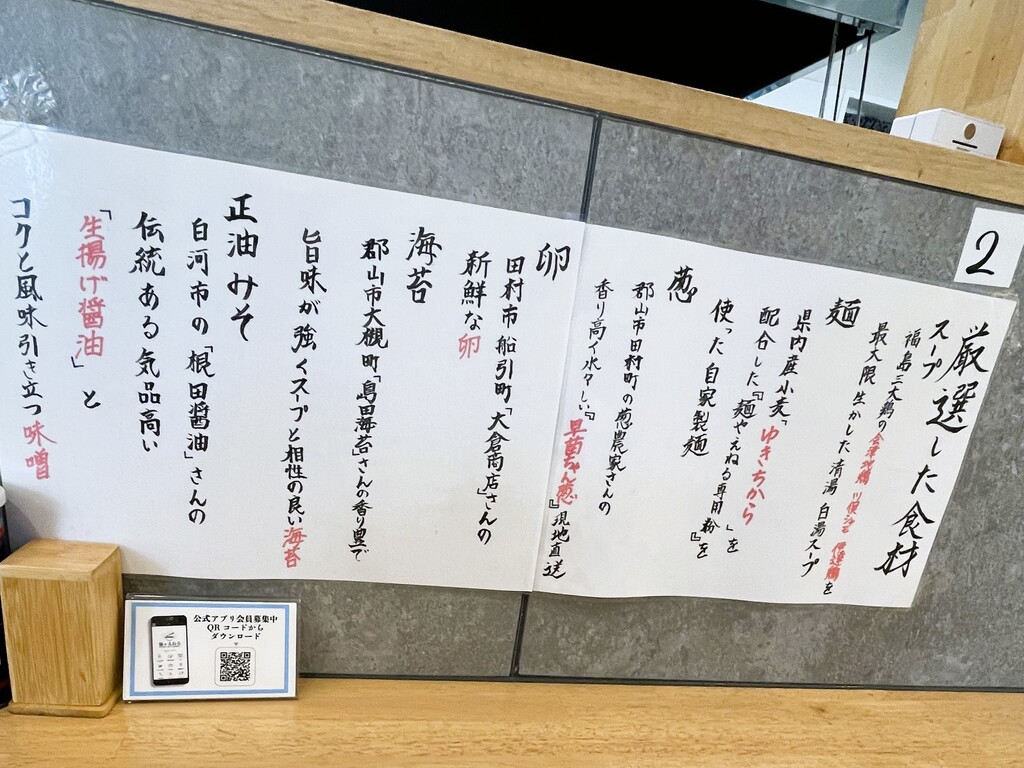 2
厳選した食材
スープ
福島三大鶏の会津地鶏 川俣シャモ 伊達鶏を
最大限生かした清湯 白湯スープ
麺
県内産小麦「ゆきちから」を
配合した『麺やえねる専用粉』を
使った自家製麺
葱
郡山市田村町の葱農家さんの
香り高く水々しい『早苗ちゃん葱』現地直送
卵
田村市船引町「大倉商店」さんの
新鮮な卵
海苔
郡山市大槻町「島田海苔」さんの香り豊で
旨味が強くスープと相性の良い海苔
正油みそ
白河市の「根田醬油」さんの
伝統ある気品高い
「生揚げ醬油」と
コクと風味引き立つ味噌
公式アプリ会員募集中
QRコードから
ダウンロード